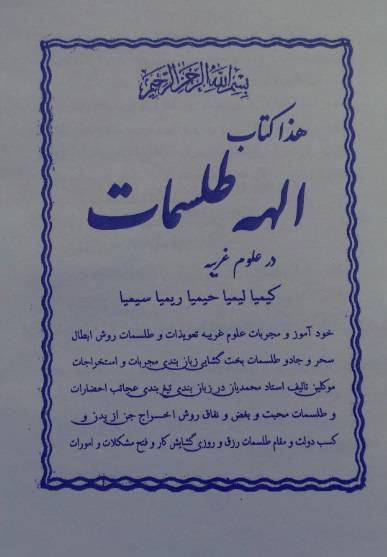 بسم الله الرحمن الرحیم
هذا کتاب
الهه طلسمات
در علوم غریبه
کیمیا لیمیا حیمیا ریمیا سیمیا
خود آموز و مجربات علوم غریبه تعویذات و طلسمات روش ابطال
سحر و جادو طلسمات بخت گشایی زبان بندی مجربات و استخراجات
موکلین تالیف استاد محمدیاز در زبان بندی تیغ بندی عجائب احضارات
و طلسمات محبت و بغض و نفاق روش اخراج جن از بدن و
کسب دولت و مقام طلسمات رزق و روزی گشایش کار و فتح مشکلات و امورات